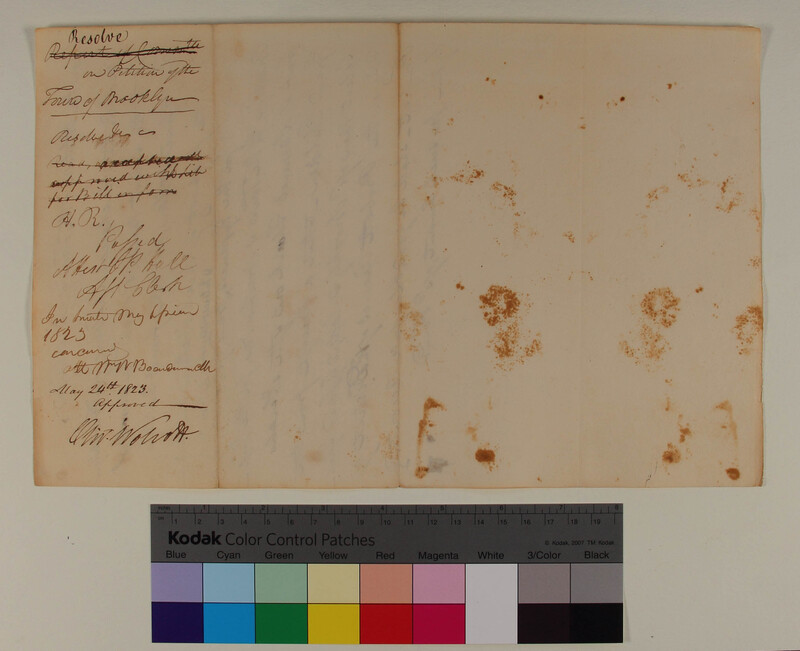 Resolve
Report of Committe
on Petition of the
Town of Brooklyn
Resolve &c
Read, accepted and
approved with
for Bill in form
H. R.
Passed
Attest Hall
Asst Clerk
In Senate May Session
1823
concurred
Att Wm W Boardman Clk
May 24th. 1823.
Approved
Oliv. Wolcott.
Kodak Color Control Patches
© Kodak, 2007 TM: Kodak
Blue Cyan Green Yellow Red Magenta White 3/Color Black
inches 1 2 3 4 5 6 7 8
cm 1 2 3 4 5 6 7 8 9 10 11 12 13 14 15 16 17 18 19